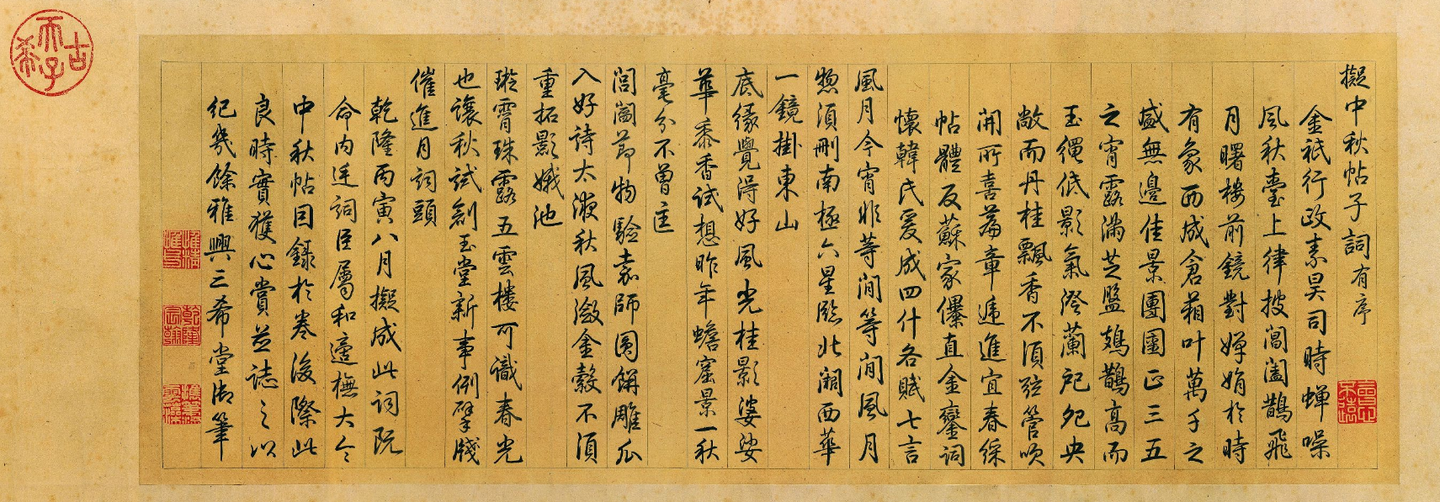 擬中秋帖子詞有序
金祇行政素昊司時蟬噪
風秋臺上律披閶闔鵲飛
月曙樓前鏡對嬋娟於時
有象西成倉箱叶萬千之
盛無邊佳景團圞正三五
之宵露滿芝盤鳷鵲高而
玉繩低影氣澄蘭戺兜央
敞而丹桂飄香不須弦管吹
開所喜篇章遞進宜春綵
帖體反蘇家儤直金鑾詞
懷韓氏爰成四什各賦七言
風月今宵非等閒等閒風月
總須刪南極六星臨北闕西華
一鏡掛東山
底緣覺得好風光桂影婆娑
華黍香試想昨年蟾窟景一秋
毫分不曾
閶闔節物驗嘉師圓餅雕瓜
入好詩太液秋風激金縠不須
重拓影娥池
璇霄珠露五雲樓可識春光
也讓秋試創玉堂新事例擘牋
催進月詞頭
乾隆丙寅八月擬成此詞既
命內廷詞臣屬和適橅大令
中秋帖因錄於卷後際此
良時實獲心賞並誌之以
紀幾餘雅興三希堂御筆
古希天子
會心不遠
乾隆宸翰